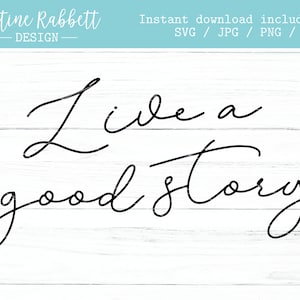 tine Rabbett
DESIGN
Instant download includ
SVG / JPG / PNG /
Live a
good story